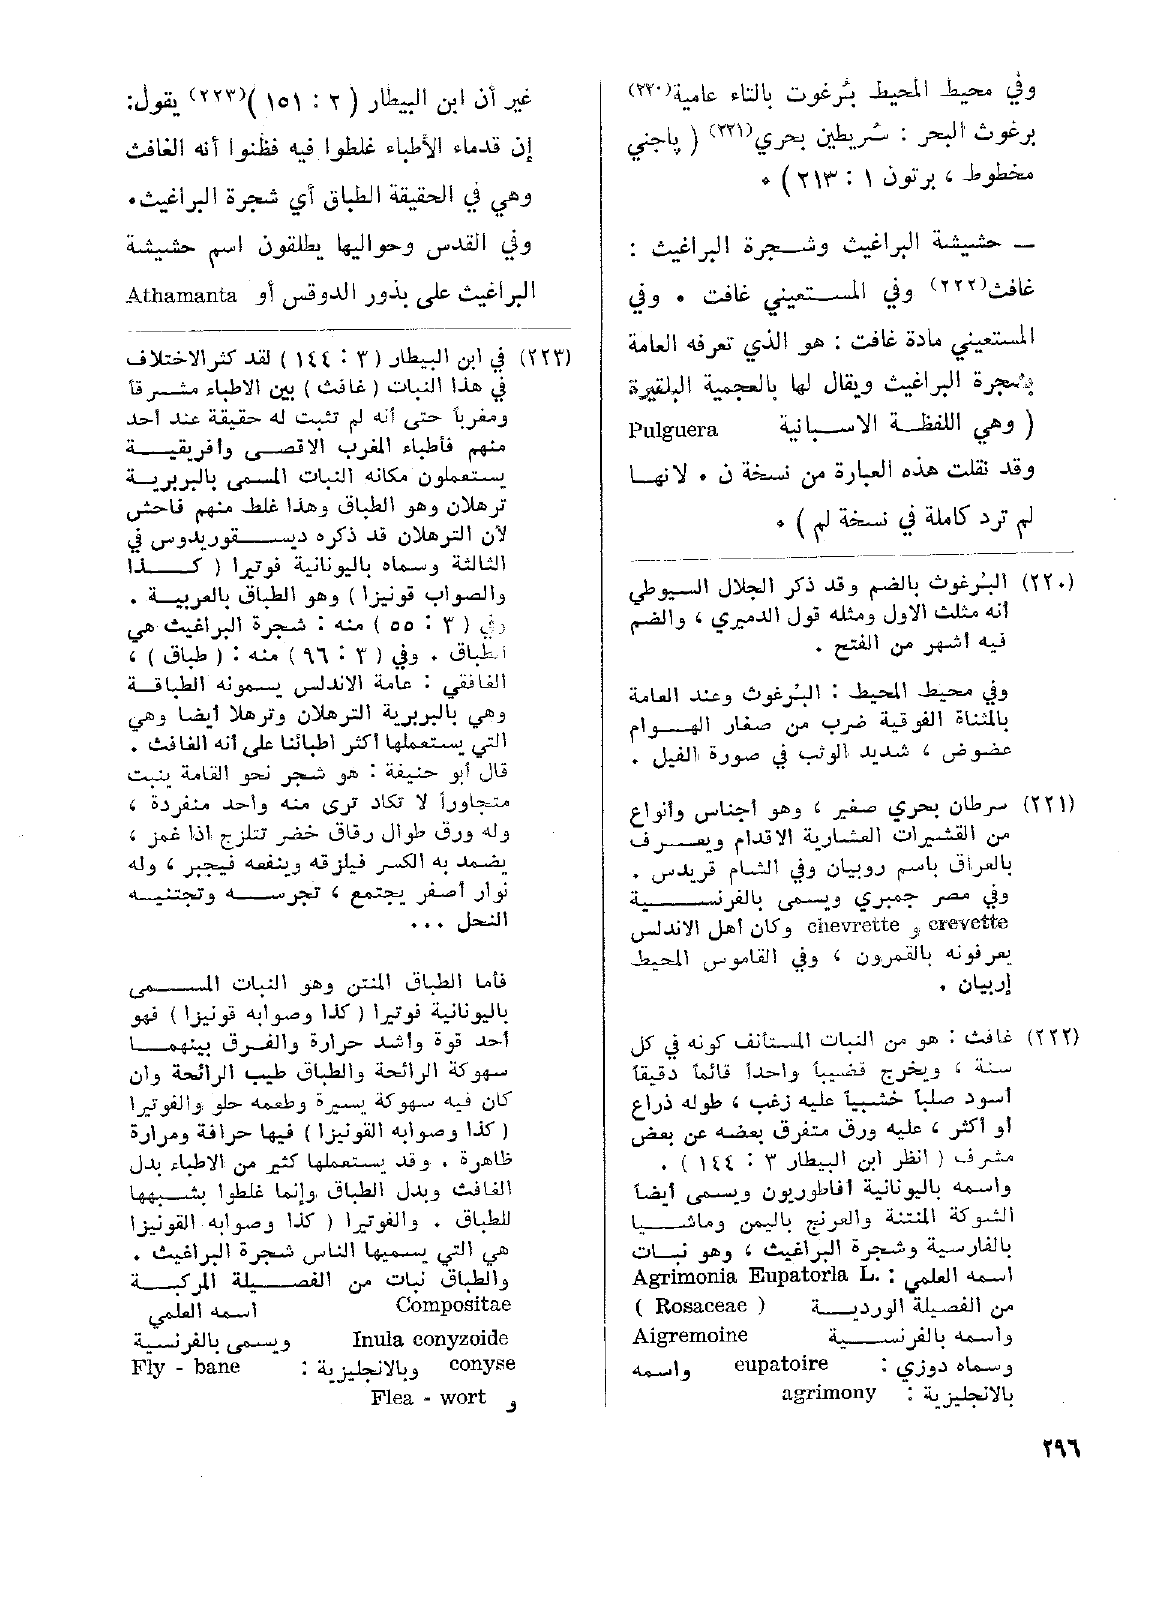 وفي محيط المحيط بُرغوت بالتاء عامية(٢٢٠)
برغوث البحر : شريطين بحري(٢٢١) ( پاجني
مخطوط ، برتون ١ : ٢١٣ ) .
— حشيشة البراغيث وشـجرة البراغيث :
غافث(٢٢٢) وفي المستعيني غافت . وفي
المستعيني مادة غافت : هو الذي تعرفه العامة
بشجرة البراغيث ويقال لها بالعجمية البلقيرة
( وهي اللفظة الاسبانية Pulguera
وقد نقلت هذه العبارة من نسخة ن . لانها
لم ترد كاملة في نسخة لم ) .
(٢٢٠) البُرغوث بالضم وقد ذكر الجلال السيوطي
أنه مثلث الاول ومثله قول الدميري ، والضم
فيه أشهر من الفتح .
وفي محيط المحيط : البُرغوث وعند العامة
بالمثناة الفوقية ضرب من صغار الهوام
عضوض ، شديد الوثب في صورة الفيل .
(٢٢١) سرطان بحري صغير ، وهو أجناس وأنواع
من القشيرات العشارية الاقدام ويعرف
بالعراق باسم روبيان وفي الشام قريدس .
وفي مصر جمبري ويسمى بالفرنسية
crevette و chevrette وكان أهل الاندلس
يعرفونه بالقمرون ، وفي القاموس المحيط
إربيان .
(٢٢٢) غافث : هو من النبات المستأنف كونه في كل
سنة ، ويخرج قضيباً واحداً قائماً دقيقاً
أسود صلباً خشبياً عليه زغب ، طوله ذراع
او أكثر ، عليه ورق متفرق بعضه عن بعض
مشرف ( انظر ابن البيطار ٣ : ١٤٤ ) .
واسمه باليونانية أفاطوريون ويسمى أيضاً
الشوكة المنتنة والعرنج باليمن وماشيا
بالفارسية وشجرة البراغيث ، وهو نبات
اسمه العلمي : Agrimonia Eupatoria L.
من الفصيلة الوردية ( Rosaceae )
واسمه بالفرنسية Aigremoine
وسماه دوزي : eupatoire واسمه
بالانجليزية : agrimony
غير أن ابن البيطار ( ٢ : ١٥١ )(٢٢٣) يقول:
إن قدماء الأطباء غلطوا فيه فظنوا أنه الغافث
وهي في الحقيقة الطباق أي شجرة البراغيث.
وفي القدس وحواليها يطلقون اسم حشيشة
البراغيث على بذور الدوقس أو Athamanta
(٢٢٣) في ابن البيطار ( ٣ : ١٤٤ ) لقد كثر الاختلاف
في هذا النبات ( غافث ) بين الاطباء مشرقاً
ومغرباً حتى أنه لم تثبت له حقيقة عند أحد
منهم فأطباء المغرب الاقصى وأفريقية
يستعملون مكانه النبات المسمى بالبربرية
ترهلان وهو الطباق وهذا غلط منهم فاحش
لأن الترهلان قد ذكره ديسقوريدوس في
الثالثة وسماه باليونانية فوتيرا ( كذا
والصواب قونيزا ) وهو الطباق بالعربية .
وفي ( ٣ : ٥٥ ) منه : شجرة البراغيث هي
الطباق . وفي ( ٣ : ٩٦ ) منه : ( طباق ) ،
الغافقي : عامة الاندلس يسمونه الطباقة
وهي بالبربرية الترهلان وترهلا أيضا وهي
التي يستعملها أكثر أطبائنا على أنه الغافث .
قال أبو حنيفة : هو شجر نحو القامة ينبت
متجاوراً لا تكاد ترى منه واحد منفردة ،
وله ورق طوال رقاق خضر تتلزج اذا غمز ،
يضمد به الكسر فيلزقه وينفعه فيجبر ، وله
نوار أصفر يجتمع ، تجرسه وتجتنيه
النحل ...
فأما الطباق المنتن وهو النبات المسمى
باليونانية فوتيرا ( كذا وصوابه قونيزا ) فهو
أحد قوة وأشد حرارة والفرق بينهما
سهوكة الرائحة والطباق طيب الرائحة وان
كان فيه سهوكة يسيرة وطعمه حلو والفوتيرا
( كذا وصوابه القونيزا ) فيها حرافة ومرارة
ظاهرة . وقد يستعملها كثير من الاطباء بدل
الغافث وبدل الطباق وإنما غلطوا بشبهها
للطباق . والفوتيرا ( كذا وصوابه القونيزا
هي التي يسميها الناس شجرة البراغيث .
والطباق نبات من الفصيلة المركبة
Compositae اسمه العلمي
Inula conyzoide ويسمى بالفرنسية
conyse وبالانجليزية : Fly - bane
و Flea - wort
٢٩٦